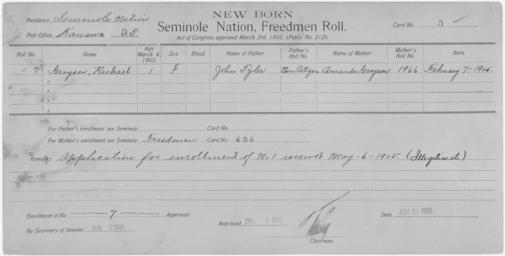 NEW BORN
Residence Seminole Nation
Seminole Nation, Freedmen Roll.
Card No. 5
Post Office Kanawa I.T.
Act of Congress approved March 3rd, 1905. (Public No. 212).
Roll No. Name Age March 4, 1905 Sex. Blood. Name of Father. Father's Roll No. Name of Mother. Mother's Roll No. Born.
7 Grayson, Rachael 1 F John Tyler Non Citizen Amanda Grayson 1966 February 7-1905.
Per Father's enrollment see Seminole Card No.
Per Mother's enrollment see Seminole Freedman Card No. 636
Remarks Application for enrollment of No 1 received May-6-1905. (Illegitimate)
Enrollment of No. 7 Approved
By Secretary of Interior AUG 1905
Approved 1905
Chairman.
Date JUN 1905